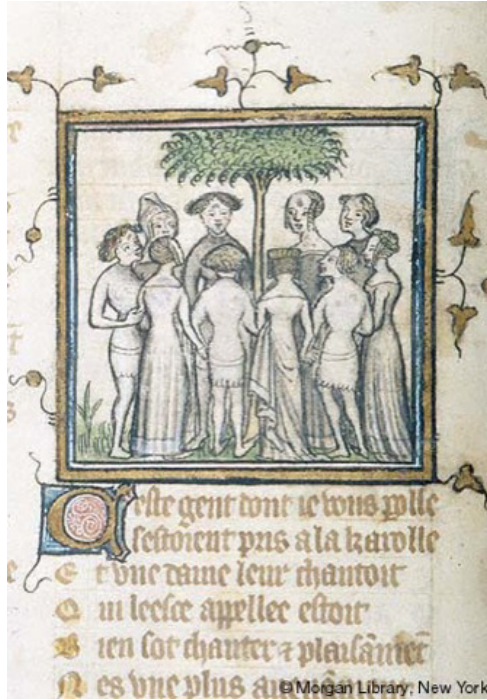 Ceste gent dont ie vous polle
sestoient pris a la karolle
E t vne dame leur chantoit
Q ui leesce appellee estoit
B ien sot chanter ⁊ plaisãmēt
N es vne plus
© Morgan Library, New York